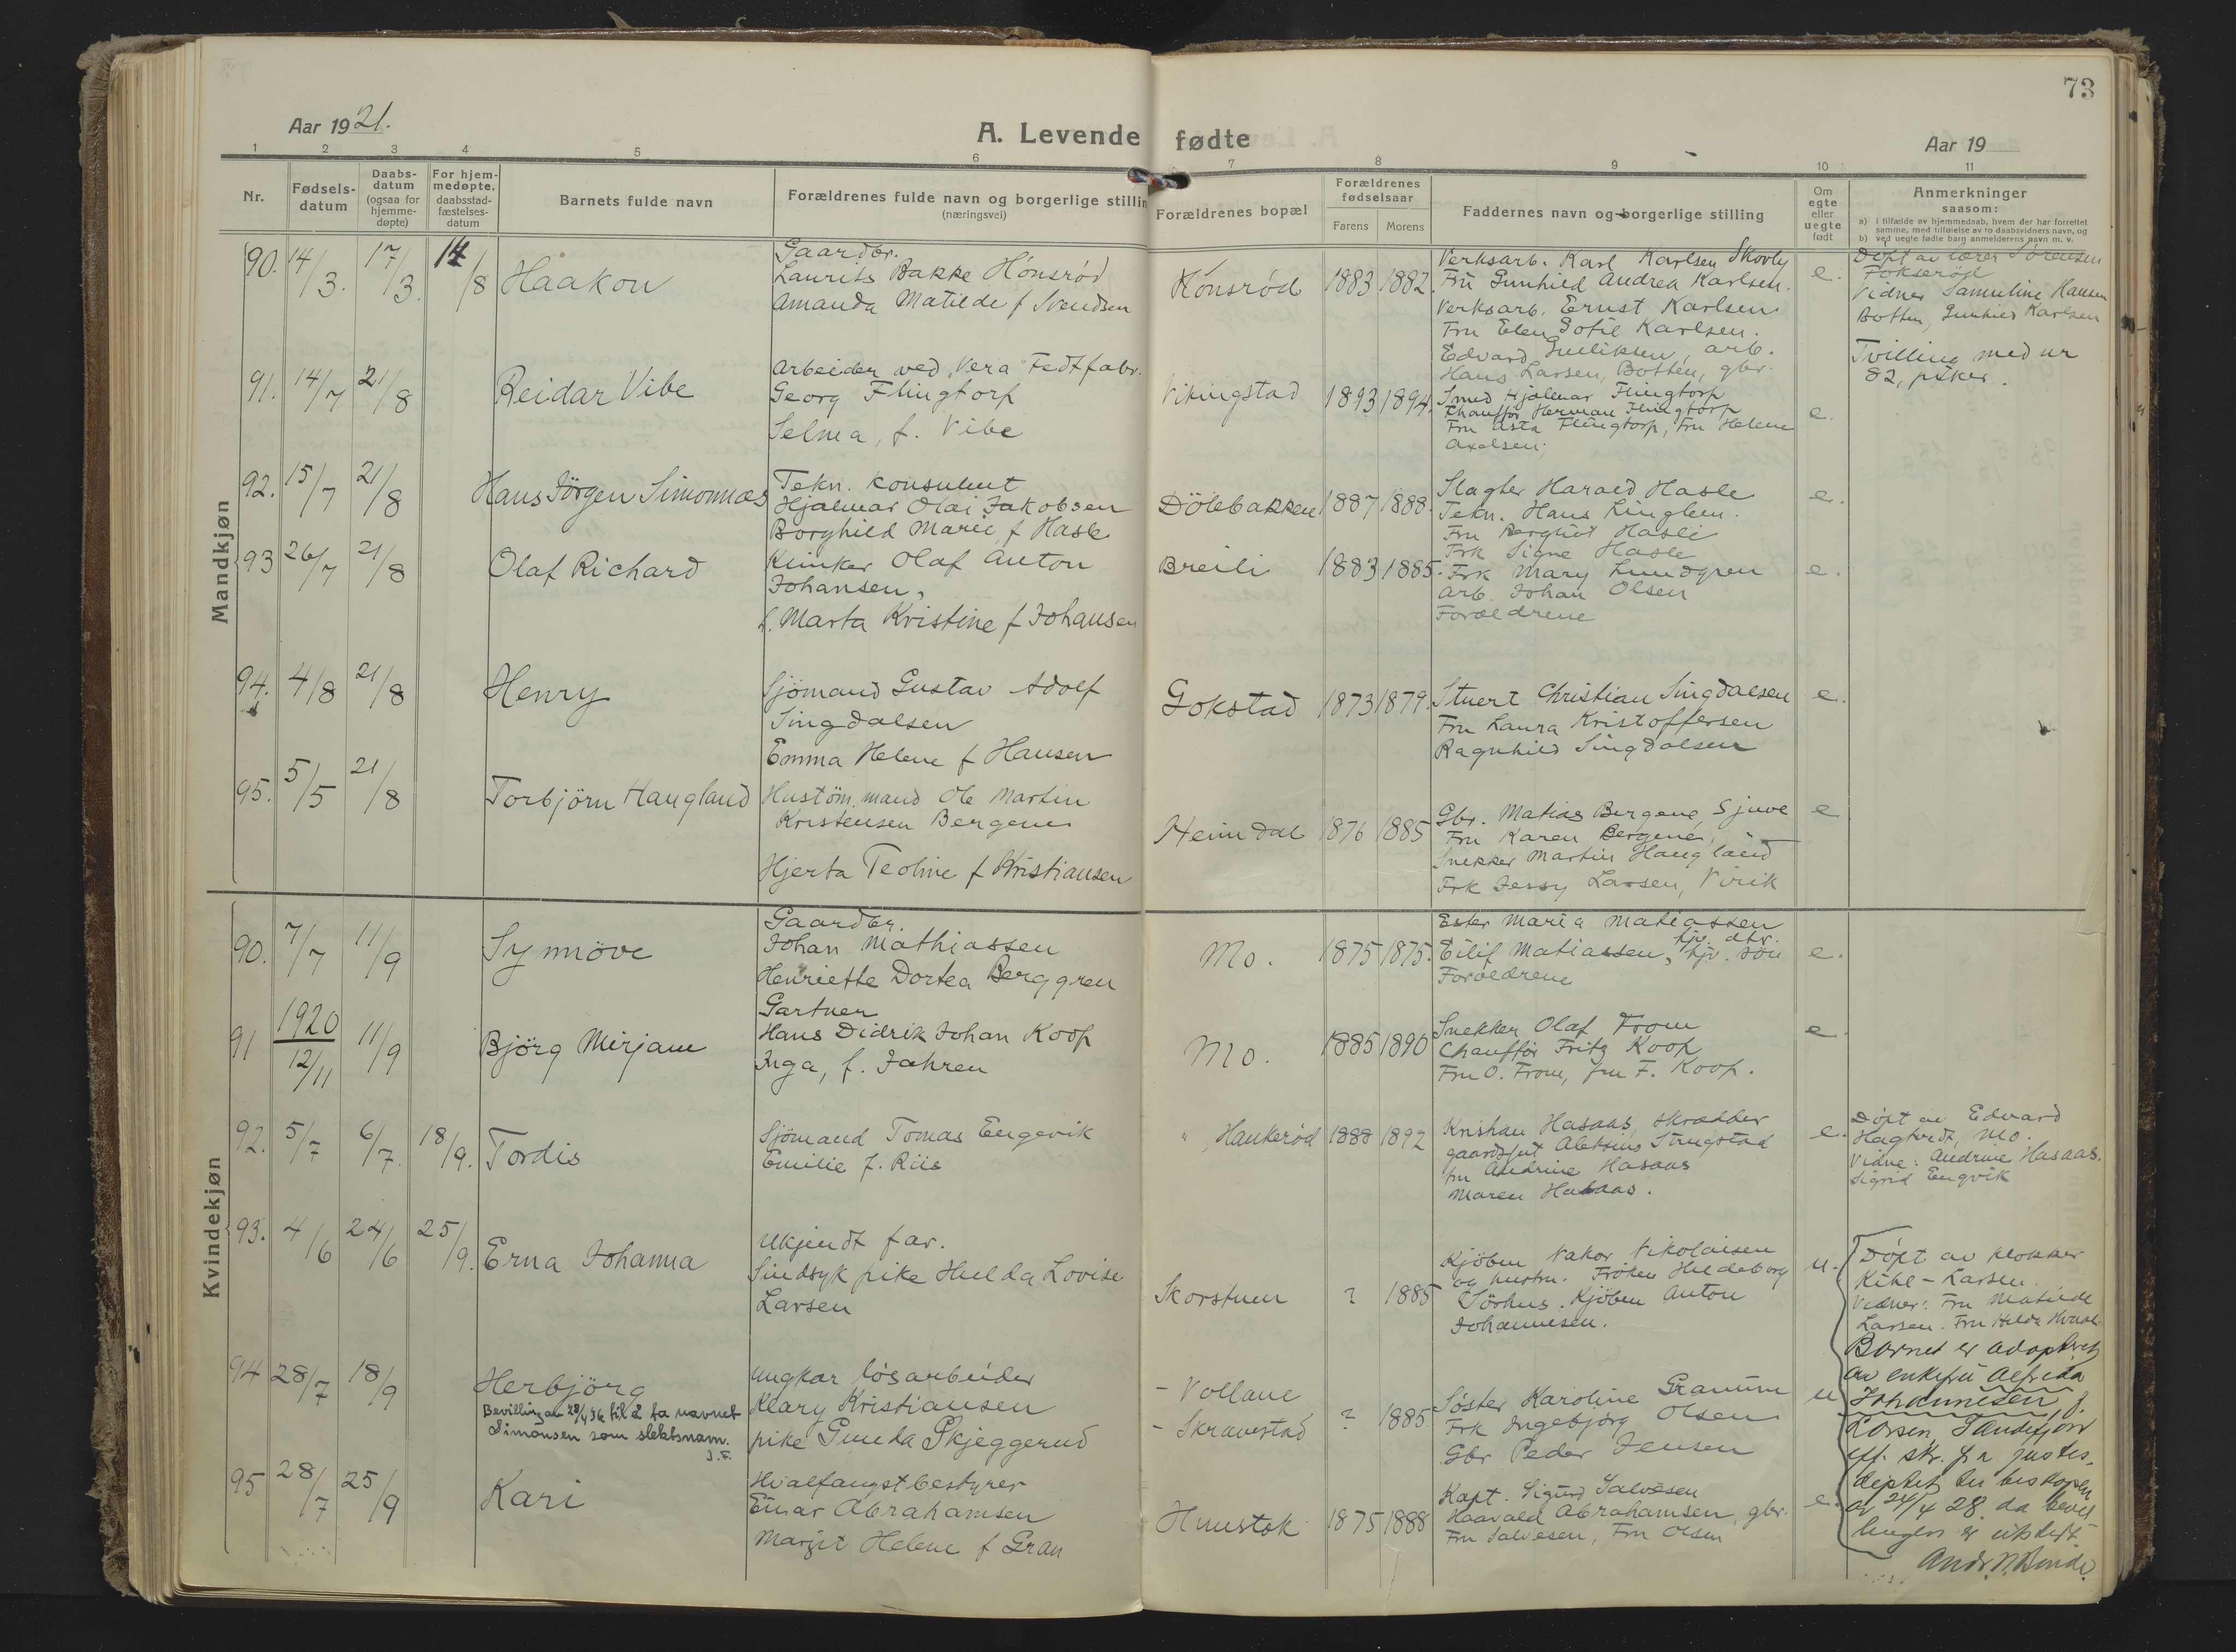 73
Aar 1921.
A. Levende fødte
Aar 19
1 2 3 4 5 6 7 8 9 10 11
Nr.
Fødsels-
datum
Daabs-
datum
(ogsaa for
hjemme-
døpte)
For hjem-
medøpte,
daabsstad-
fæstelses-
datum
Barnets fulde navn
Forældrenes fulde navn og borgerlige stillin
(næringsvei)
Forældrenes bopæl
Forældrenes
fødselsaar
Farens Morens
Faddernes navn og borgerlige stilling
Om
egte
eller
uegte
født
Anmerkninger
saasom:
a) i tilfælde av hjemmedaab, hvem der har forrettet
samme, med tilføielse av to daabsvidners navn, og
b) ved uegte fødte barn anmelderens navn m. v.
Mandkjøn
90. 14/3. 17/3. 14/8 Haakon
Gaardbr.
Laurits Bakke Hönsröd
Amanda Matilde f Svendsen
Hönsröd 1883 1882.
Verksarb. Karl Karlsen Skovly
Fru Gunhild Andrea Karlsen.
Verksarb. Ernst Karlsen
Fru Elen Sofie Karlsen.
Edvard Guliksen, arb.
Hans Larsen, Botten, gbr.
e.
Döpt av lærer Sörensen
Fokseröd
Vidner Samuline Hansen
Botten, Gunhild Karlsen
Tvilling med nr
82, piker.
91. 14/7 21/8 Reidar Vibe
Arbeider ved "Vera" Fedtfabr.
Georg Flingtorp
Selma, f. Vibe
Vikingstad 1893 1894.
Smed Hjalmar Flingtorp
Chaufför Herman Flingtorp
Fru Asta Flingtorp, Fru Helene
Axelsen;
e.
92. 15/7 21/8 Hans Jörgen Simonnæs
Tekn. konsulent
Hjalmar Olai Jakobsen
Borghild Marie f Hasle
Dölebakken 1887 1888.
Slagter Harald Hasle
Tekn. Hans Ringlem.
Fru Bergliot Hasle
Frk Signe Hasle
e.
93 26/7 21/8 Olaf Richard
Klinker Olaf Anton
Johansen,
Marta Kristine f Johansen
Breili 1883 1885.
Frk Mary Lundgren
Arb. Johan Olsen
Forældrene
e.
94. 4/8 21/8 Henry
Sjömand Gustav Adolf
Singdalsen
Emma Helene f Hansen
Gokstad 1873 1879.
Stuert Christian Singdalsen
Fru Laura Kristoffersen
Ragnhild Singdalsen
e.
95. 5/5 21/8 Torbjörn Haugland
Hustöm. mand Ole Martin
Kristensen Bergene
Hjerta Teoline f Kristiansen
Heimdal 1876 1885
Gbr. Matias Bergene, Sjuve
Fru Karen Bergene,
Snekker Martin Haugland
Frk Jessy Larsen, Virik
e
Kvindekjøn
90. 7/7 11/9 Synnöve
Gaardbr.
Johan Mathiassen
Henriette Dortea Berggren
Mo. 1875 1875.
Ester Maria Matiassen
hjv. dtr.
Eilif Matiassen, hjv. sön
Forældrene
e.
91 1920 12/11 11/9 Björg Mirjam
Gartner
Hans Didrik Johan Koop
Inga, f. Jahren
Mo. 1885 1890
Snekker Olaf From
Chaufför Fritz Koop
Fru O. From, fru F. Koop.
e.
92. 5/7 6/7. 18/9. Tordis
Sjömand Tomas Engevik
Emilie f. Riis
" Haukeröd 1888 1892
Kristian Hasaas, skrædder
gaardsgut Aletsius Strugstad
fru Andrine Hasaas
Maren Hasaas.
e.
Döpt av Edvard
Hagtvedt, Mo.
Vidne: Andrine Hasaas.
Sigrid Engvik
93. 4/6 24/6 25/9. Erna Johanna
Ukjendt far.
Sindsyk pike Hulda Lovise
Larsen
Skorstuen ? 1885
Kjöbm Nakor Nikolaisen
og hustru. Fröken Hildeborg
Sörhus. Kjöbm Anton
Johannesen.
u.
Döpt av klokker
Kihl-Larsen.
Vidner: Fru Matilde
Larsen. Fru Hilda
Barnet er adoptert
av enkefru Alfrida
Johannesen, f.
Larsen, Sandefjord
eff. skr. fra justis-
deptet til biskopen
av 24/4 28. da bevil-
lingen er utstedt.
94 28/7 18/9 Herbjörg
Bevilling av 28/4 36 til å ta navnet
Simonsen som slektsnavn.
J.F.
Ungkar lösarbeider
Klary Kristiansen
pike Gunda Skjeggerud
- Vollane
- Skravestad ? 1885
Söster Karoline Granum
Frk Ingebjörg Olsen
Gbr Peder Jensen
u
95 28/7 25/9 Kari
Hvalfangstbestyrer
Einar Abrahamsen
Margit Helene f Gran
Hunstok 1875 1888
Kapt. Sigurd Salvesen
Haavald Abrahamsen, gbr.
Fru Salvesen, Fru Olsen
e.